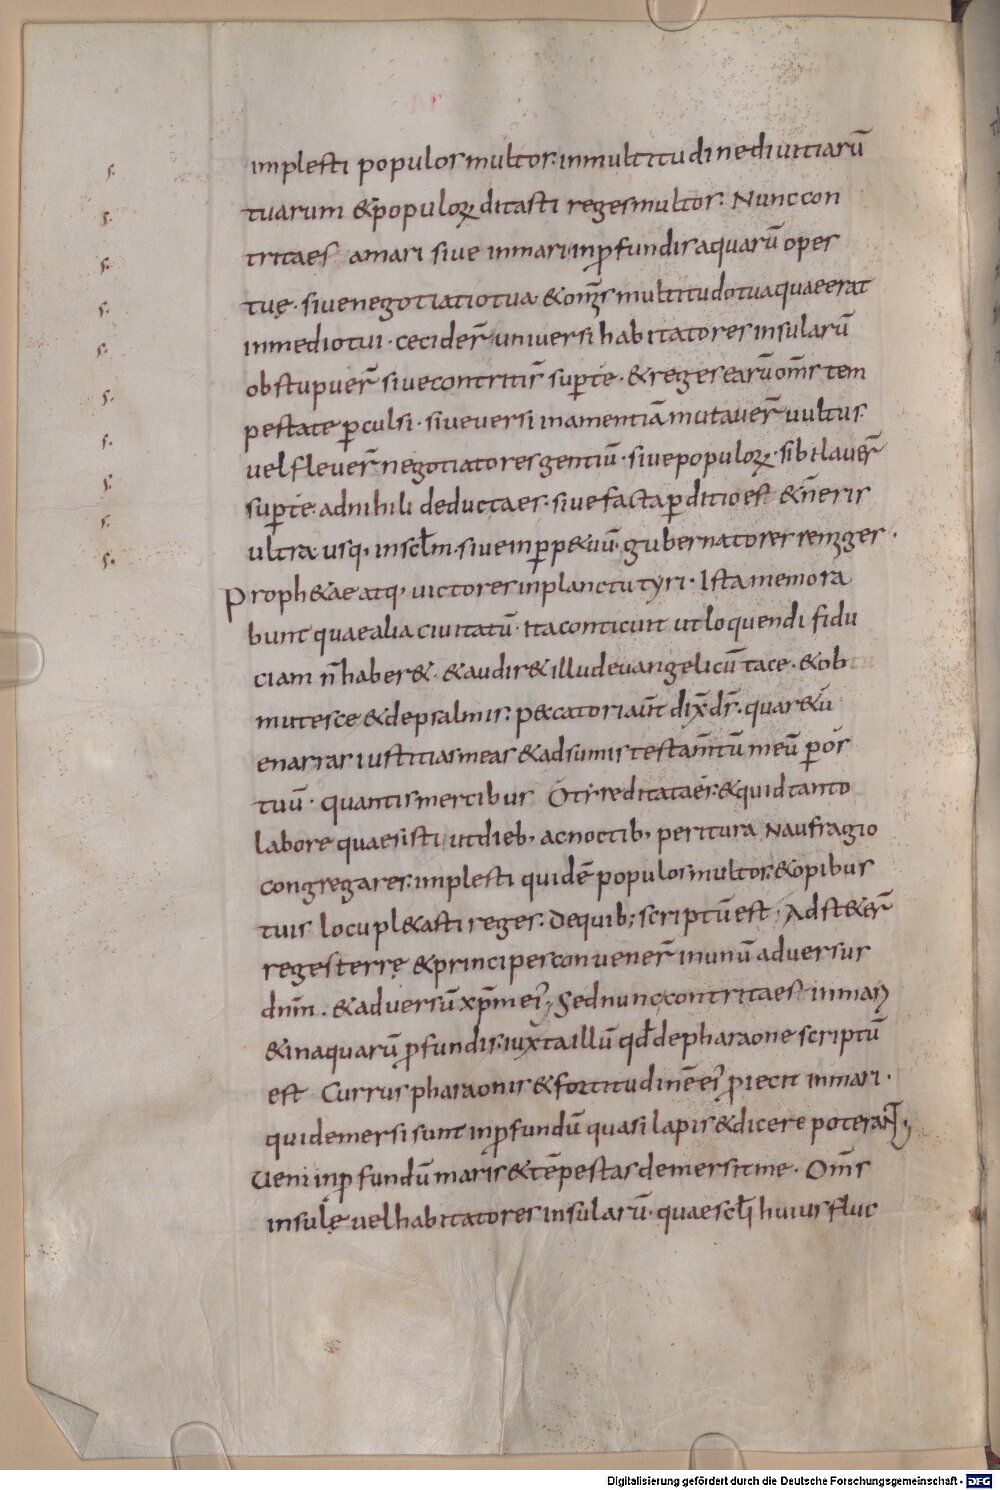 implesti populos multos. in multitudine divitiarū
tuarum & populoꝝ ditasti reges multos. Nunc con
trita es a mari sive in mari in ꝓfundis aquarū opes
tuę · sive negotiatio tua & om̄s multitudo tua quae erat
in medio tui · cecider̄ universi habitatores insularū
obstupuer̄ sive contristi᷒ sup te · & reges earū om̄s tem
pestate ꝑculsi · sive versi in amentiā mutaver̄ vultus
vel flever̄ negotiatores gentiū · sive populoꝝ · sibilaver̄
sup te · ad nihili deducta es · sive facta ꝑditio est & n̄ eris
ultra usq; in sc̄lm · sive in ꝑp&uū · gubernatores remiges ·
Proph&ae atq; victores in planctu tyri · Ista memora
bunt quae alia civitatū ita conticuit ut loquendi fidu
ciam n̄ haber& · & audir& illud evangelicū tace · & ob
mutesce & de psalmis. p&catori aūt dix̄ ds̄. quare tū
enarras iustitias meas & adsumis testam̄tū meū ꝑ os
tuū · quantis mercibus O tyre ditata es. & quid tanto
labore quaesisti ut dieb; ac noctib; peritura naufragio
congregares. implesti quidē populos multos. & opibus
tuis locupl&asti reges. de quib; scriptū est · Adst&er̄
reges terrę & principes convener̄ in unū adversus
dn̄m . & adversū xp̄m ei᷒; Sed nunc contrita es in mari
& in aquarū ꝓfundis. iuxta illū qd̄ de pharaone scriptū
est Currus pharaonis & fortitudinē ei᷒ ꝓiecit in mari ·
qui demersi sunt in ꝓfundū quasi lapis & dicere poterant;
Veni in ꝓfundū maris & tēpestas demersit me · Om̄s
insulę vel habitatores insularū · quae sc̄li huius fluc
ς.
ς.
ς.
ς.
ς.
ς.
ς.
ς.
ς.
ς.
Digitalisierung gefördert durch die Deutsche Forschungsgemeinschaft - DFG